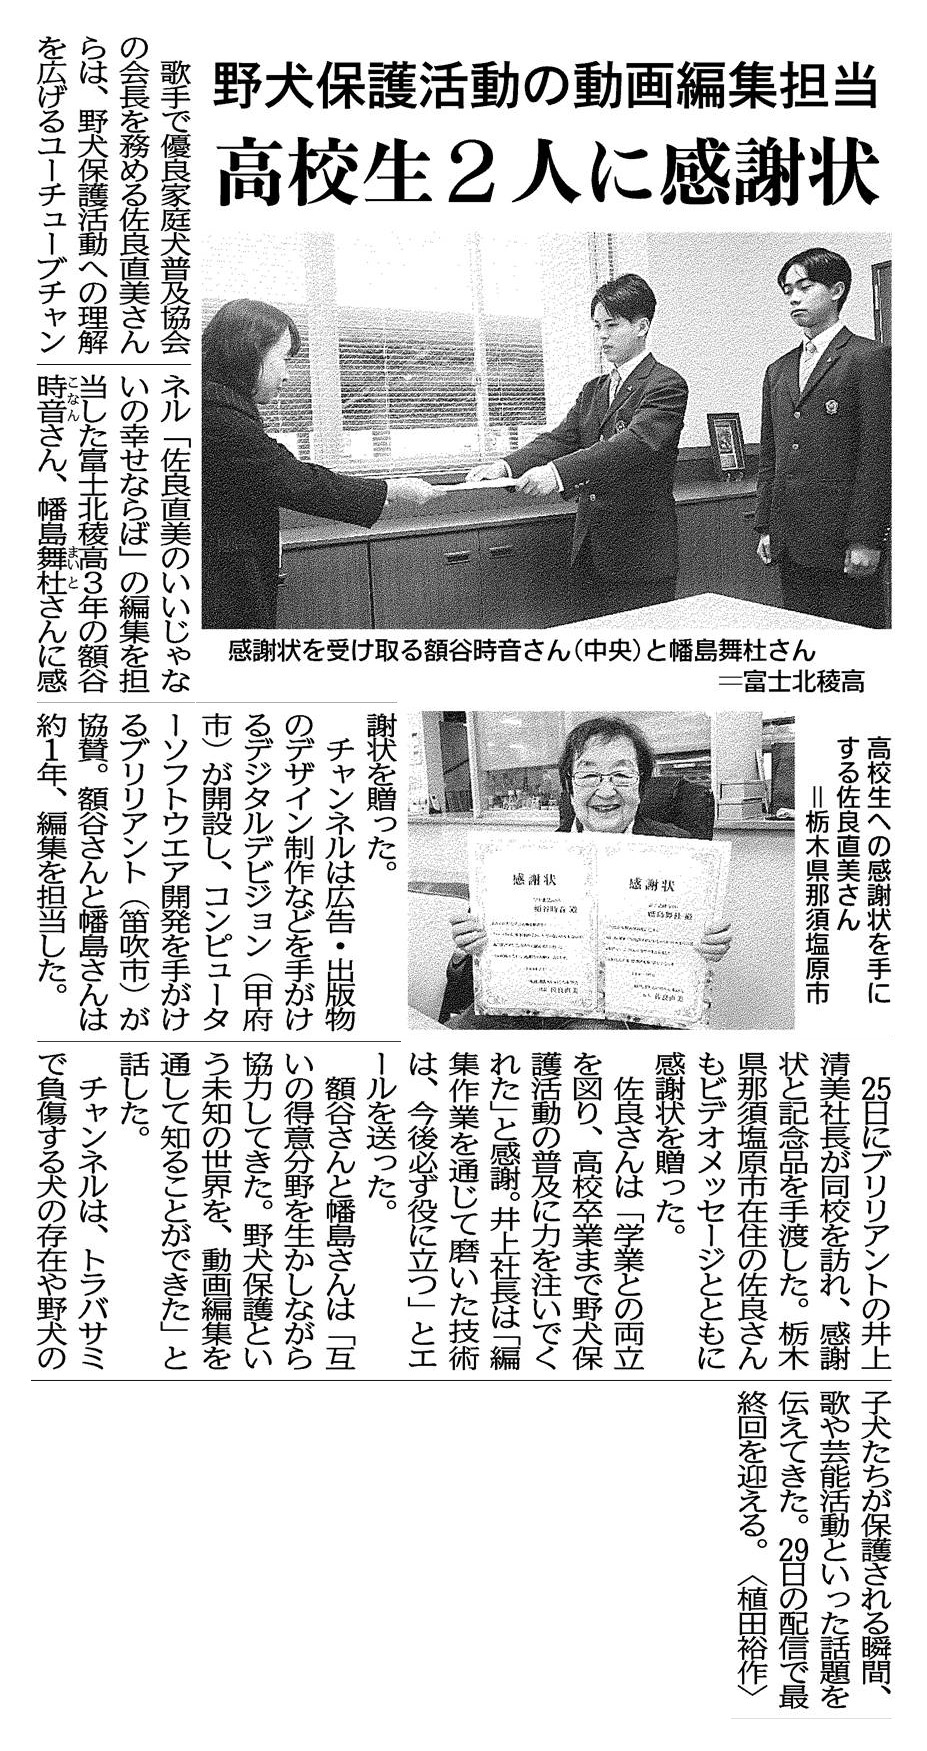 野犬保護活動の動画編集担当
高校生２人に感謝状
歌手で優良家庭犬普及協会
の会長を務める佐良直美さん
らは、野犬保護活動への理解
を広げるユーチューブチャン
ネル「佐良直美のいいじゃな
いの幸せならば」の編集を担
当した富士北稜高３年の額谷
時音さん、幡島舞杜さんに感
こなん
まいと
感謝状を受け取る額谷時音さん(中央)と幡島舞杜さん
＝富士北稜高
謝状を贈った。
チャンネルは広告・出版物
のデザイン制作などを手がけ
るデジタルデビジョン（甲府
市）が開設し、コンピュータ
ーソフトウエア開発を手がけ
るブリリアント（笛吹市）が
協賛。額谷さんと幡島さんは
約１年、編集を担当した。
高校生への感謝状を手に
する佐良直美さん
＝栃木県那須塩原市
感謝状
額谷時音 殿
佐良直美
感謝状
幡島舞杜 殿
佐良直美
25日にブリリアントの井上
清美社長が同校を訪れ、感謝
状と記念品を手渡した。栃木
県那須塩原市在住の佐良さん
もビデオメッセージとともに
感謝状を贈った。
佐良さんは「学業との両立
を図り、高校卒業まで野犬保
護活動の普及に力を注いでく
れた」と感謝。井上社長は「編
集作業を通じて磨いた技術
は、今後必ず役に立つ」とエ
ールを送った。
額谷さんと幡島さんは「互
いの得意分野を生かしながら
協力してきた。野犬保護とい
う未知の世界を、動画編集を
通して知ることができた」と
話した。
チャンネルは、トラバサミ
で負傷する犬の存在や野犬の
子犬たちが保護される瞬間、
歌や芸能活動といった話題を
伝えてきた。29日の配信で最
終回を迎える。〈植田裕作〉